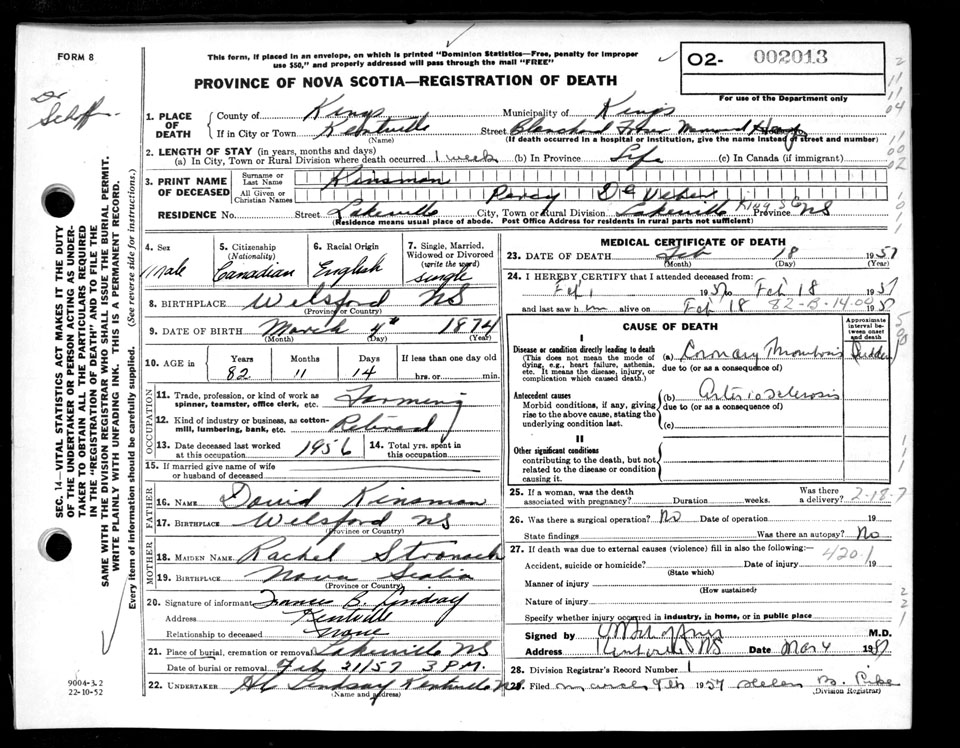 FORM 8
This form, if placed in an envelope, on which is printed "Dominion Statistics—Free, penalty for improper
use $50," and properly addressed will pass through the mail "FREE"
PROVINCE OF NOVA SCOTIA—REGISTRATION OF DEATH
O2- 002013
For use of the Department only
Dr
SEC. 14—VITAL STATISTICS ACT MAKES IT THE DUTY
OF THE UNDERTAKER OR PERSON ACTING AS UNDER-
TAKER TO OBTAIN ALL THE PARTICULARS REQUIRED
IN THE "REGISTRATION OF DEATH" AND TO FILE THE
SAME WITH THE DIVISION REGISTRAR WHO SHALL ISSUE THE BURIAL PERMIT.
WRITE PLAINLY WITH UNFADING INK. THIS IS A PERMANENT RECORD.
Every item of information should be carefully supplied. (See reverse side for instructions.)
1. PLACE OF DEATH
County of Kings Municipality of Kings
If in City or Town Kentville Street Blanchard Fraser Memorial Hosp
(Name) (If death occurred in a hospital or institution, give the name instead of street and number)
2. LENGTH OF STAY (in years, months and days)
(a) In City, Town or Rural Division where death occurred 1 week (b) In Province Life (c) In Canada (if immigrant)
3. PRINT NAME OF DECEASED
Surname or Last Name Kinsman
All Given or Christian Names Percy De
RESIDENCE No. Street Lakeville City, Town or Rural Division Lakeville Kings Co Province NS
(Residence means usual place of abode. Post Office Address for residents in rural parts not sufficient)
4. Sex Male
5. Citizenship (Nationality) Canadian
6. Racial Origin English
7. Single, Married, Widowed or Divorced (write the word) Single
8. BIRTHPLACE Welsford NS
(Province or Country)
9. DATE OF BIRTH March 4th 1874
(Month) (Day) (Year)
10. AGE in Years Months Days If less than one day old
82 11 14 hrs. or min.
OCCUPATION
11. Trade, profession or kind of work as spinner, teamster, office clerk, etc. Farming
12. Kind of industry or business, as cotton-mill, lumbering, bank, etc. Retired
13. Date deceased last worked at this occupation 1956
14. Total yrs. spent in this occupation
15. If married give name of wife or husband of deceased
FATHER
16. NAME David Kinsman
17. BIRTHPLACE Welsford NS
(Province or Country)
MOTHER
18. MAIDEN NAME Rachel Stronach
19. BIRTHPLACE Nova Scotia
(Province or Country)
20. Signature of informant B. Lindsay
Address Kentville
Relationship to deceased None
21. Place of burial, cremation or removal Lakeville NS
Date of burial or removal Feb 21/57 3 P.M.
22. UNDERTAKER Lindsay Kentville NS
(Name and address)
9004-3.2
22-10-52
MEDICAL CERTIFICATE OF DEATH
23. DATE OF DEATH Feb 18 1957
(Month) (Day) (Year)
24. I HEREBY CERTIFY that I attended deceased from
Feb 1 1957 to Feb 18 1957
and last saw h m alive on Feb 18 1957
82-B-14.00
CAUSE OF DEATH
Approximate interval between onset and death
I
Disease or condition directly leading to death
(This does not mean the mode of dying, e.g., heart failure, asthenia, etc. It means the disease, injury, or complication which caused death.)
(a) Coronary Thrombosis Sudden
due to (or as a consequence of)
Antecedent causes
Morbid conditions, if any, giving rise to the above cause, stating the underlying condition last.
(b) Arteriosclerosis
due to (or as a consequence of)
(c)
II
Other significant conditions
contributing to the death, but not related to the disease or condition causing it.
25. If a woman, was the death associated with pregnancy? Duration weeks. Was there a delivery? 2-18-7
26. Was there a surgical operation? No Date of operation 19
State findings Was there an autopsy? No
27. If death was due to external causes (violence) fill in also the following:—
420.1
Accident, suicide or homicide? Date of injury 19
(State which)
Manner of injury
(How sustained)
Nature of injury
Specify whether injury occurred in industry, in home, or in public place
Signed by M.D.
Address Kentville NS Date Mar 4 1957
28. Division Registrar's Record Number 1
29. Filed March 9th 1957 Helen B. Pike
(Division Registrar)